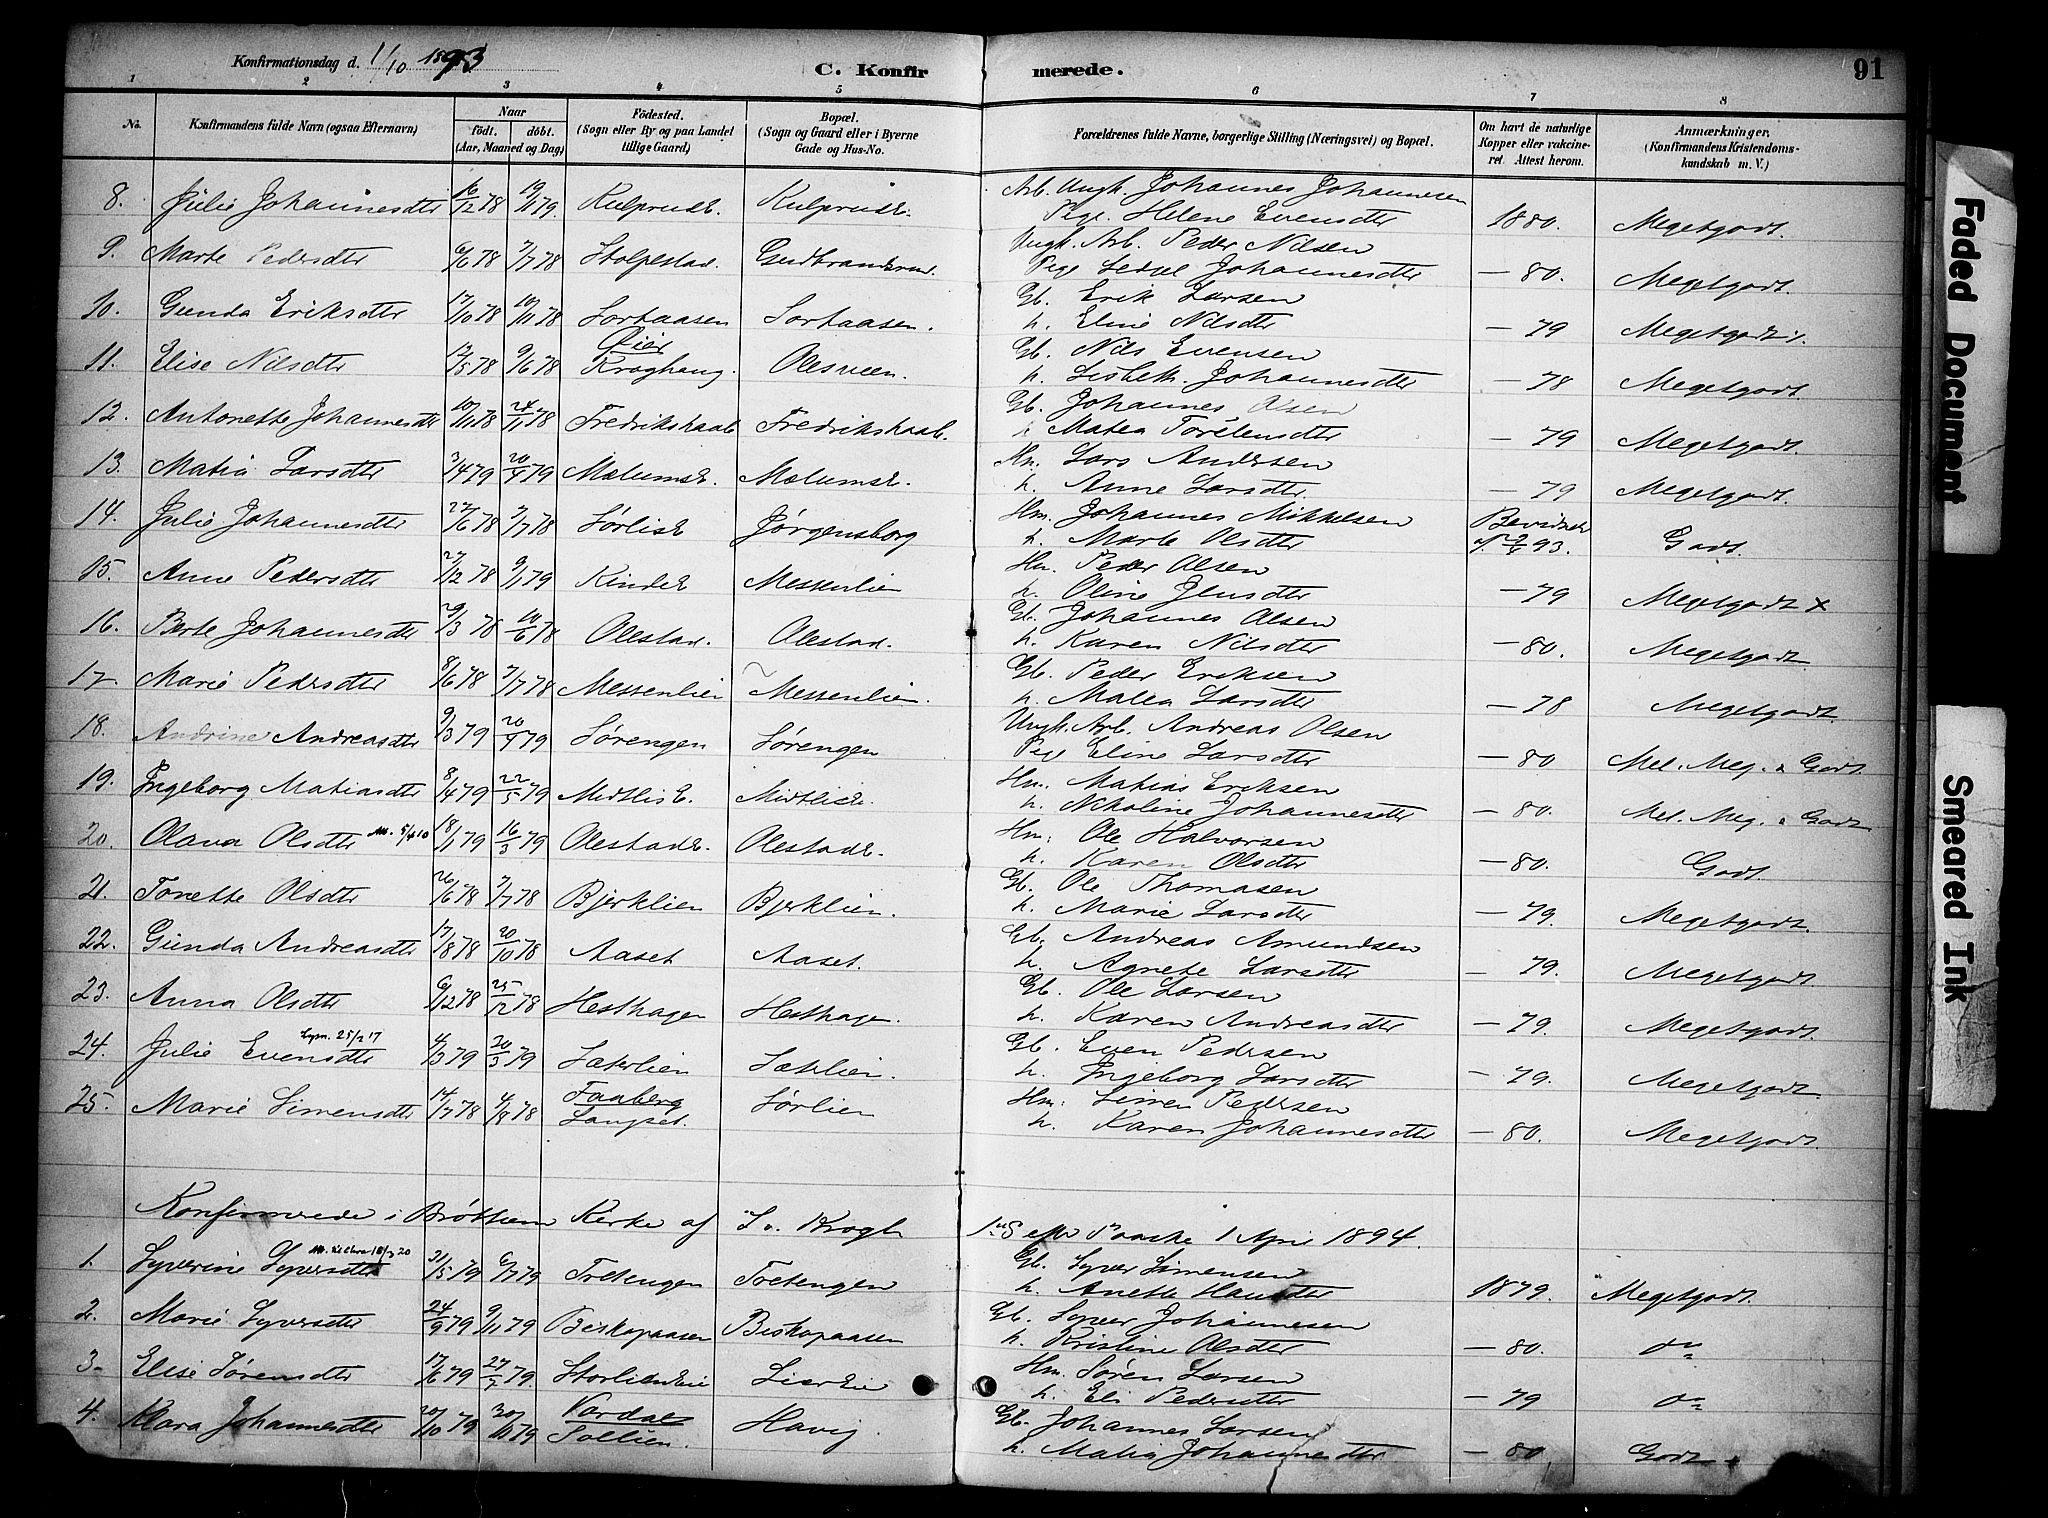 Konfirmationsdag d. 1/10 1893
C. Konfirmerede.
91
1 2 3 4 5 6 7 8
No. Konfirmandens fulde Navn (ogsaa Efternavn) Naar født. døbt. (Aar, Maaned og Dag) Födested. (Sogn eller By og paa Landet tillige Gaard) Bopæl. (Sogn og Gaard eller i Byerne Gade og Hus-No. Forældrenes fulde Navne, borgerlige Stilling (Næringsvei) og Bopæl. Om havt de naturlige Kopper eller vakcineret Attest herom. Anmærkninger, (Konfirmandens Kristendomskundskab m. V.)
8. Julie Johannesdtr 16/12 78 19/1 79 KulprudE. Kulprudse. Arb. Ungk. Johannes Johannesen
Pige. Helene Evensdtr 1880. Megetgodt.
9. Marte Pedersdtr 6/6 78 7/7 78 Stolpestad. Gudbrandsrud. Ungk. Arb. Peder Nilsen
Pige Sedsel Johannesdtr – 80. Megetgodt.
10. Gunda Eriksdtr 17/10 78 10/11 78 Sortaasen Sortaasen. Gb. Erik Larsen
h. Eline Nilsdtr – 79 Megetgodt.
11. Elise Nilsdtr 12/5 78 9/6 78 Øier Kraghaug. Olesveen. Gb. Nils Evensen
h. Lisbeth. Johannesdtr – 78 Megetgodt.
12. Antonette Johannesdtr 10/11 78 24/11 78 Fredrikskaab Fredrikskaab. Gb. Johannes Olsen
h Matea Torstensdtr – 79 Megetgodt.
13. Matia Larsdtr 3/4 79 20/4 79 MælumsE. MælumsE. Hm. Lars Andersen
h. Anne Larsdtr. – 79 Megetgodt.
14. Julie Johannesdtr 22/6 78 7/7 78 SørliE Jørgensborg Hm. Johannes Mikkelsen
h. Marte Olsdtr 93. Godt.
15. Anne Pedersdtr 27/12 78 9/1 79 KindsE Messenlien Hm. Peder Olsen
h. Oline Jensdtr – 79 Megetgodt x
16. Berte Johannesdtr 29/3 78 10/6 78 Olestad. Olestad. Gb. Johannes Olsen
h. Karen Nilsdtr – 80. Megetgodt
17 Marie Pedersdtr 8/6 78 7/7 78 Messenlien Messenlien. Gb. Peder Eriksen
h. Matea Larsdtr – 78 Megetgodt
18. Andrine Andreasdtr 9/3 79 20/4 79 Sørengen Sørengen Ungk. Arb. Andreas Olsen
Pige Eline Larsdtr – 80 Mel. Meg. & Godt
19. Ingeborg Matiasdtr 8/4 79 22/5 79 MidtliE. MidtliE. Hm. Matias Eriksen
h. Nikoline Johannesdtr – 80. Mel. Meg. & Godt
20. Olava Olsdtr 5/4 10 18/1 79 16/3 79 OlestadE. OlestadE. Hm. Ole Halvorsen
h. Karen Olsdtr – 80. Godt.
21. Tonette Olsdtr 26/6 78 7/7 78 Bjerklien Bjerklien. Gb. Ole Thomasen
h. Marie Larsdtr – 79. Megetgodt.
22. Gunda Andreasdtr 17/8 78 20/10 78 Aaset Aaset. Gb. Andreas Amundsen
h. Agnete Larsdtr – 79. Megetgodt
23. Anna Olsdtr 6/12 78 25/12 78 Hesthagen Hesthagen. Gb. Ole Larsen
h. Karen Andreasdtr – 79. Megetgodt.
24. Julie Evensdtr 25/2 17 4/3 79 20/3 79 Sæterlien Sæterlien. Gb. Even Pedersen
h. Ingeborg Larsdtr – 79. Megetgodt
25. Marie Simensdtr 14/7 78 4/8 78 Faaberg Langset. Sørlien Hm. Simen Pedersen
h. Karen Johannesdtr – 80. Megetgodt
Konfirmerede i Brøttum Kirke af S. v. Krogh 1ste S. efter Paaske 1 April 1894.
1. Syverine Syversdtr 18/3 20 31/5 79 6/7 79 Tretengen Tretengen Gb. Syver Simensen
h. Anette Hansdtr 1879. Megetgodt.
2. Marie Syversdtr 24/9 79 9/11 79 Beskopaasen Biskopaasen Gb. Syver Johannesen
h. Kristine Olsdtr – 80. do
3. Elise Sørensdtr 17/6 79 27/7 79. StorlienEie LierEie Hm. Søren Larsen
h. Eli Pedersdtr – 79 do
4. Klara Johannesdtr 20/10 79 30/11 79 Vardal Sollien. Havig Gb. Johannes Larsen
h. Matia Johannesdtr – 80. Godt
Faded Document
Smeared Ink